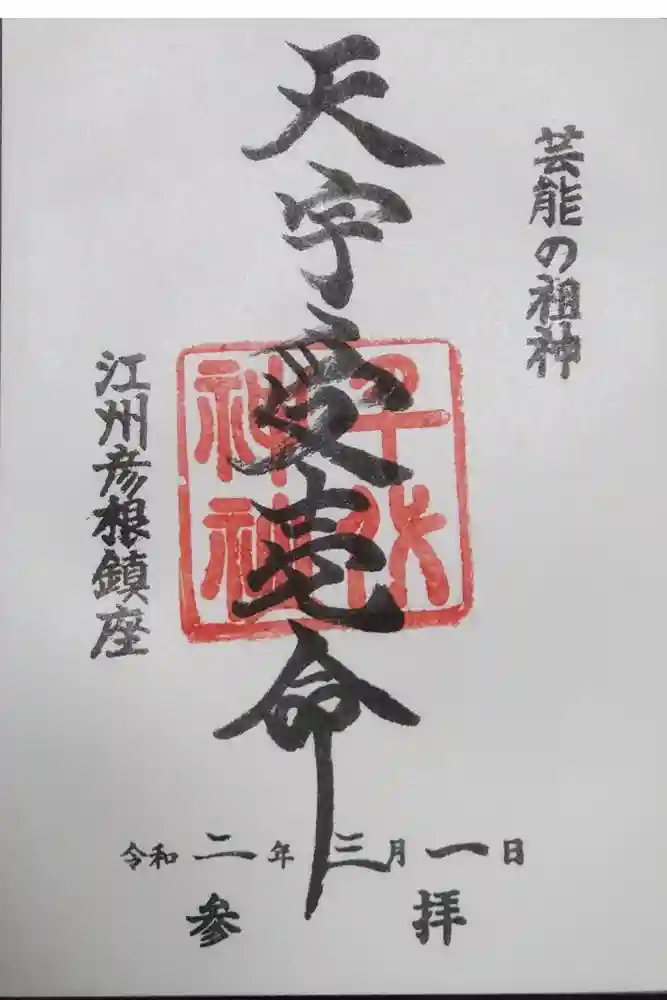 芸能の祖神
天宇受売命
千代神社
江州彦根鎮座
令和二年三月一日
参拝